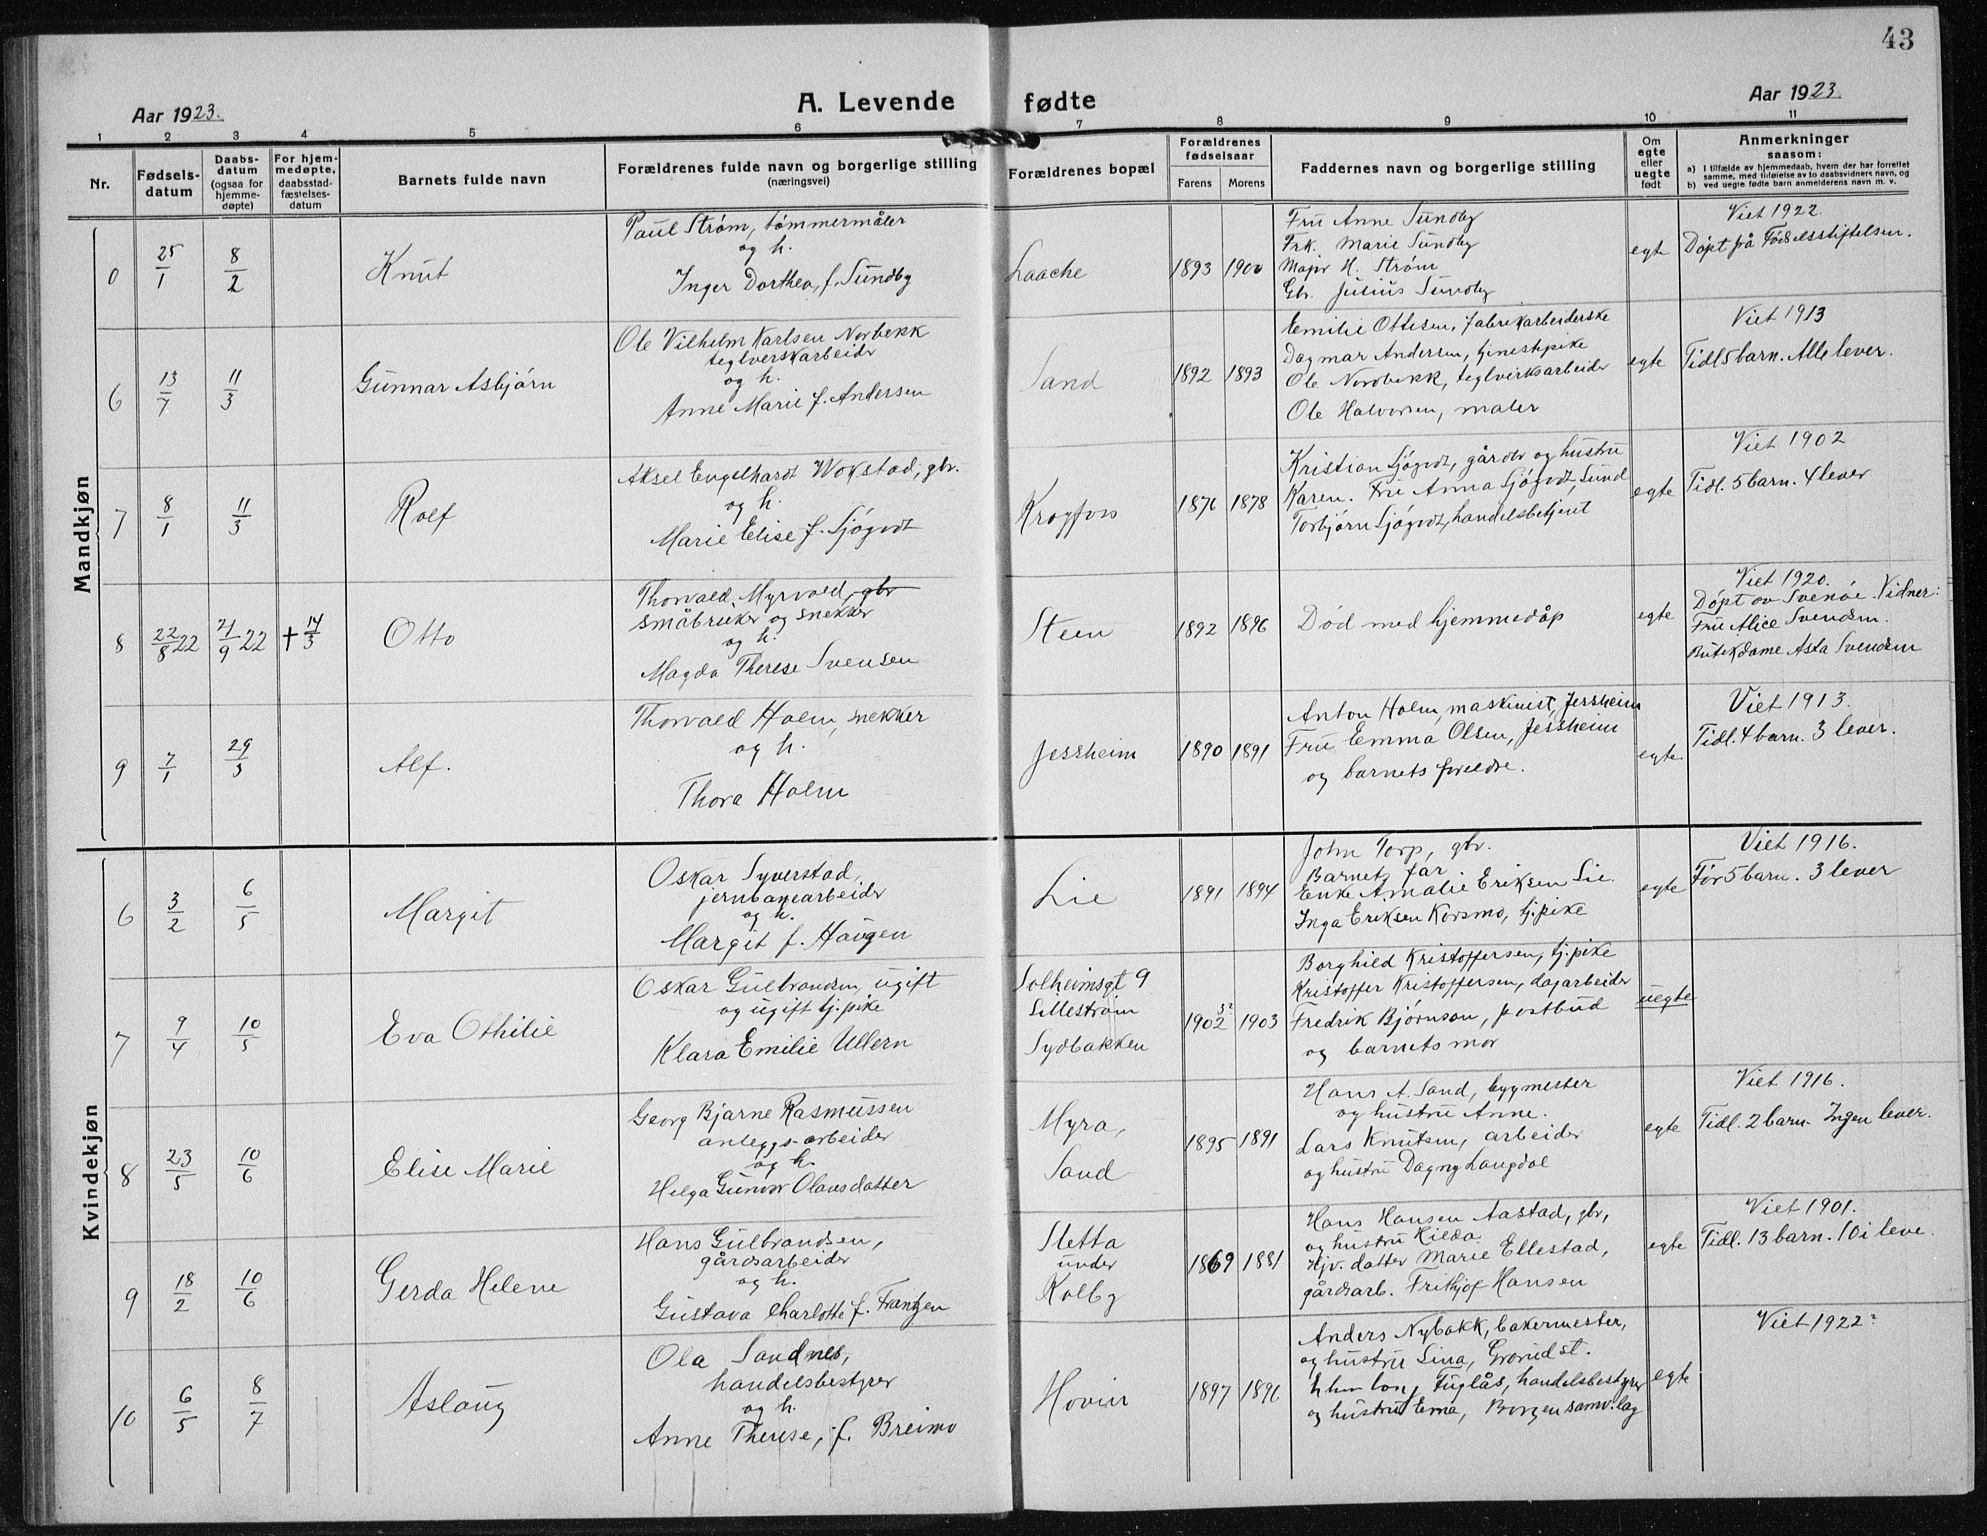 43
Aar 1923.
A. Levende fødte
Aar 1923.
1 2 3 4 5 6 7 8 9 10 11
Nr.
Fødsels-
datum
Daabs-
datum
(ogsaa for
hjemme-
døpte)
For hjem-
medøpte,
daabsstad-
fæstelses-
datum
Barnets fulde navn
Forældrenes fulde navn og borgerlige stilling
(næringsvei)
Forældrenes bopæl
Forældrenes
fødselsaar
Farens Morens
Faddernes navn og borgerlige stilling
Om
egte
eller
uegte
født
Anmerkninger
saasom:
a) I tilfælde av hjemmedaab, hvem der har forrettet
samme, med tilføielse av to daabsvidners navn, og
b) ved uegte fødte barn anmelderens navn m. v.
Mandkjøn
0 25/1 8/2 Knut
Paul Strøm, tømmermåler
og h.
Inger Dorthea, f. Sundby
Laache 1893 1900
Fru Anne Sundby
Frk. Marie Sundby
Major H. Strøm
Gbr. Julius Sundby
egte
Viet 1922.
Døpt på Fødselsstiftelsen.
6 13/7 11/3 Gunnar Asbjørn
Ole Vilhelm Karlsen Norbekk
teglverskarbeidr
og h.
Anne Marie f. Andersen
Sand 1892 1893
Emilie Ottesen, fabrikarbeiderske
Dagmar Andersen, tjenestepike
Ole Nordbekk, teglverksarbeider
Ole Halvorsen, maler
egte
Viet 1913
Tidl 5 barn. Alle lever.
7 8/1 11/3 Rolf
Aksel Engelhardt Wokstad, gbr.
og h.
Marie Elise f. Sjøgvdt
Krogfoss 1876 1878
Kristian Sjøgvdt, gårdbr og hustru
Karen. Fru Anna Sjøgvdt, Sund
Torbjørn Sjøgvdt, handelsbetjent
egte
Viet 1902
Tidl. 5 barn. 4 lever
8 22/8 22 21/9 22 + 14/3 Otto
Thorvald Myrvold, gbr
småbruker og snekker
og h.
Magda Therese Svensen
Steen 1892 1896
Død med hjemmedåp
egte
Viet 1920.
Døpt av Svenøe. Vidner:
Fru Alice Svendsen.
Butikdame Asta Svendsen
9 7/1 29/3 Alf.
Thorvald Holm, snekker
og h.
Thora Holm
Jessheim 1890 1891
Anton Holm, maskinist, Jessheim
Fru Emma Olsen, Jessheim
og barnets foreldre.
egte
Viet 1913.
Tidl. 4 barn. 3 lever.
Kvindekjøn
6 3/2 6/5 Margit
Oskar Syverstad,
jernbanearbeidr
og h.
Margit f. Haugen
Lie 1891 1894
John Torp, gbr.
Barnets far
Enke Amalie Eriksen Lie.
Inga Eriksen Korsmo, tj.pike
egte
Viet 1916.
Før 5 barn. 3 lever
7 9/4 10/5 Eva Othilie
Oskar Gulbrandsen, ugift
og ugift tj.pike
Klara Emilie Ullern
Solheimsgt 9
Lillestrøm
Sydbakken
1902 1903
Borghild Kristoffersen, tj.pike
Kristoffer Kristoffersen, dagarbeider
Fredrik Bjørnson, postbud
og barnets mor
uegte
8 23/5 10/6 Elise Marie
Georg Bjarne Rasmussen
anleggs-arbeider
og h.
Helga Gunvor Olausdatter
Myra,
Sand
1895 1891
Hans A. Sand, bygmester
og hustru Anne.
Lars Knutsen, arbeider
og hustru Dagny Langdal
egte
Viet 1916.
Tidl. 2 barn. Ingen lever.
9 18/2 10/6 Gerda Helene
Hans Gulbrandsen,
gårdsarbeidr
og h.
Gustava Charlotte f. Frantzen
Sletta
under
Kolby
1869 1881
Hans Hansen Aastad, gbr,
og hustru Hilda
Hjv. datter Marie Ellestad,
gårdsarb. Frithjof Hansen
egte
Viet 1901.
Tidl. 13 barn. 10 i leve.
10 6/5 8/7 Aslaug
Ola Sandnes,
handelsbestyrer
og h.
Anne Therese, f. Breimo
Hovin 1897 1896
Anders Nybakk, bakermester,
og hustru Lina, Grorud st.
Fuglås, handelsbestyrer
og hustru Erna, Borgen samv.lag
egte
Viet 1922?